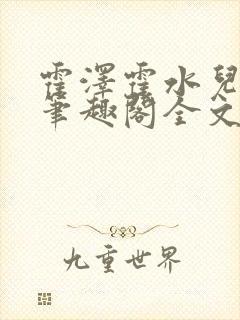 霍澤霍水兒
筆趣閣全文
九重世界